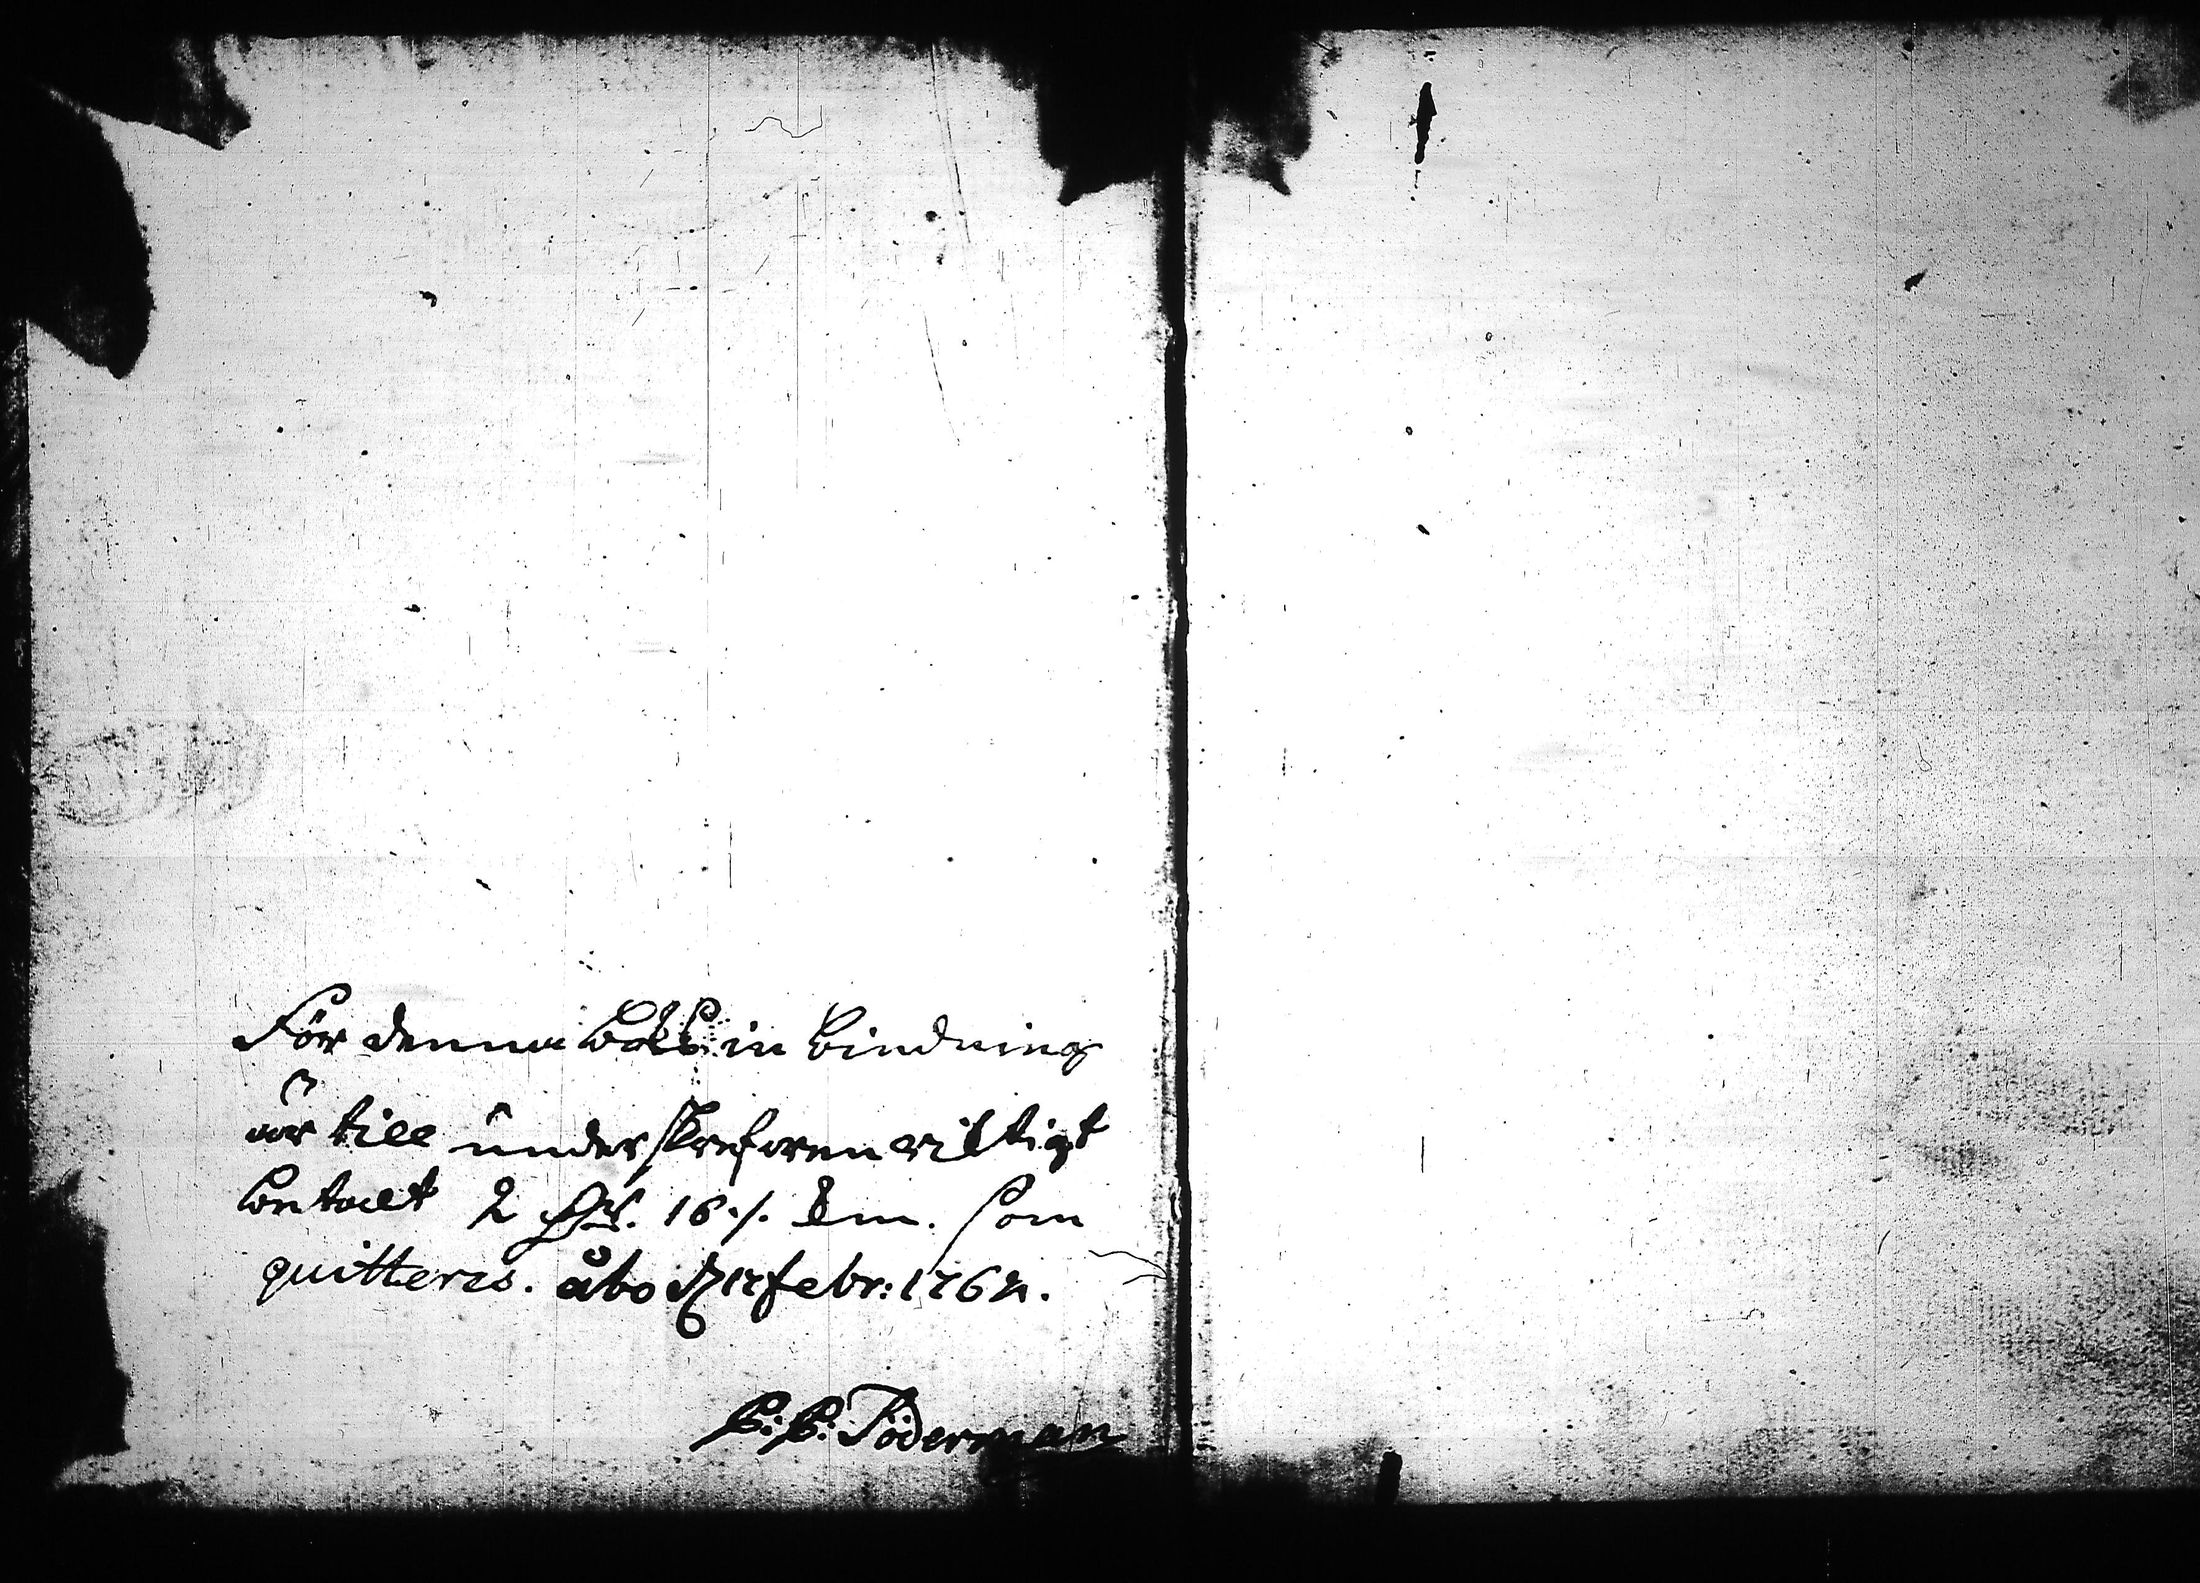 För denna Bok in bindning
är till underskrefvrenricktigt
betalt 2 Dr. 16 /. Sm. som
quitteras. åbo d 17 febr: 1764.
C: C: Söderman